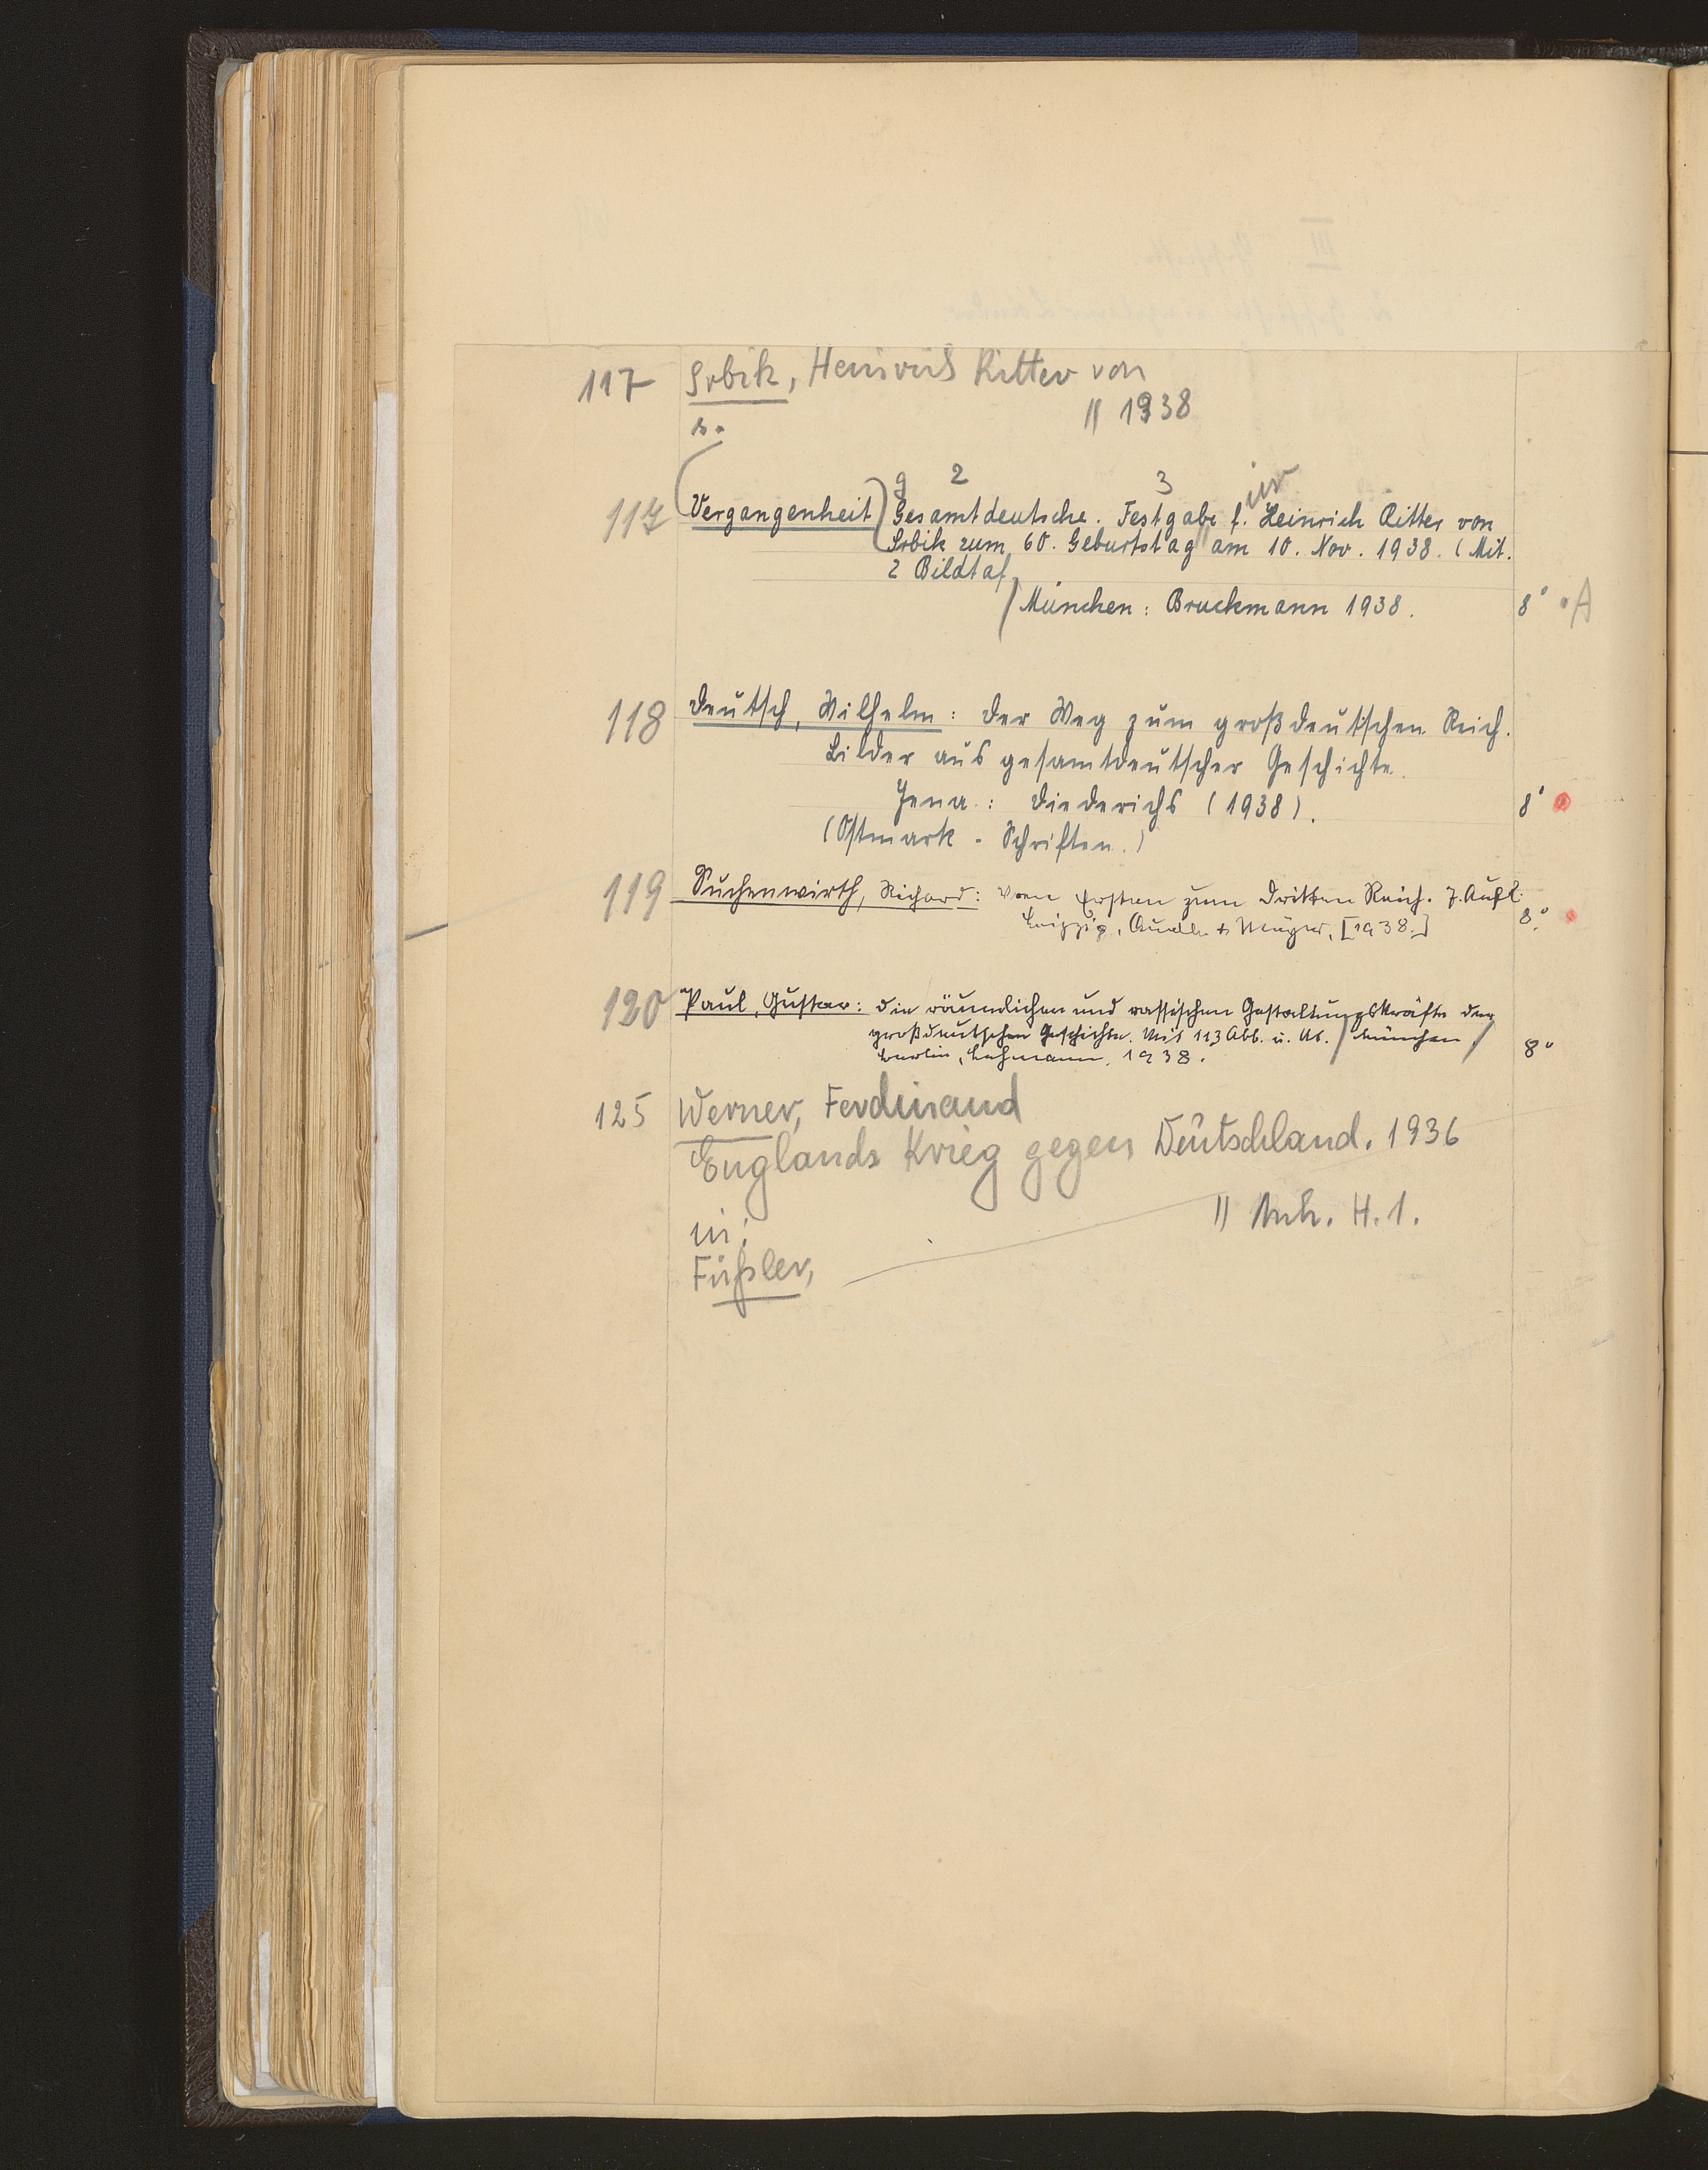 117 Srbik, Heinrich Ritter von
s. || 1938
g 2 3 ür
117 (Vergangenheit) Gesamtdeutsche. Festgabe f. Heinrich Ritter von
Srbik zum 60. Geburtstag || am 10. Nov. 1938. (Mit.
2 Bildtaf.
/ München: Bruckmann 1938. 8° • A
118 Deutsch, Wilhelm: Der Weg zum großdeutschen Reich.
Bilder aus gesamtdeutscher Geschichte.
Jena: Diederichs (1938). 8°
(Ostmark-Schriften.)
119 Suchenwirth, Richard: Vom Ersten zum Dritten Reich. 7. Aufl.
Leipzig, Quelle & Meyer, [1938.] 8°
120 Paul, Gustav: Die räumlichen und rassischen Gestaltungskräfte der
großdeutschen Geschichte. Mit 113 Abb. u. / München /
Berlin, Lehmann, 1938. 8°
125 Werner, Ferdinand
Englands Krieg gegen Deutschland. 1936
in: || Anh. H. 1.
Füßler,